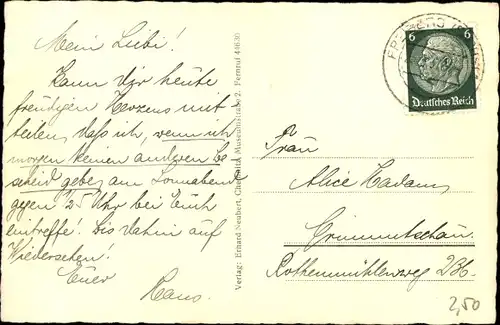 Mein Liebi!
Kann Dir heute
freudigen Herzens mit-
teilen, daß ich, wenn ich
morgen keinen anderen Be-
scheid gebe, am Sonnabend
gegen 25 Uhr bei Euch
eintreffe! Bis dahin auf
Wiedersehen!
Euer
Hans.
Verlag: Erhard Neubert, Chemnitz, Museumstraße 2. Fernruf 44630
6 6
Deutsches Reich
Frau
Alice Hadam,
Crimmitschau.
Rothenmühlenweg 23b.
2,50